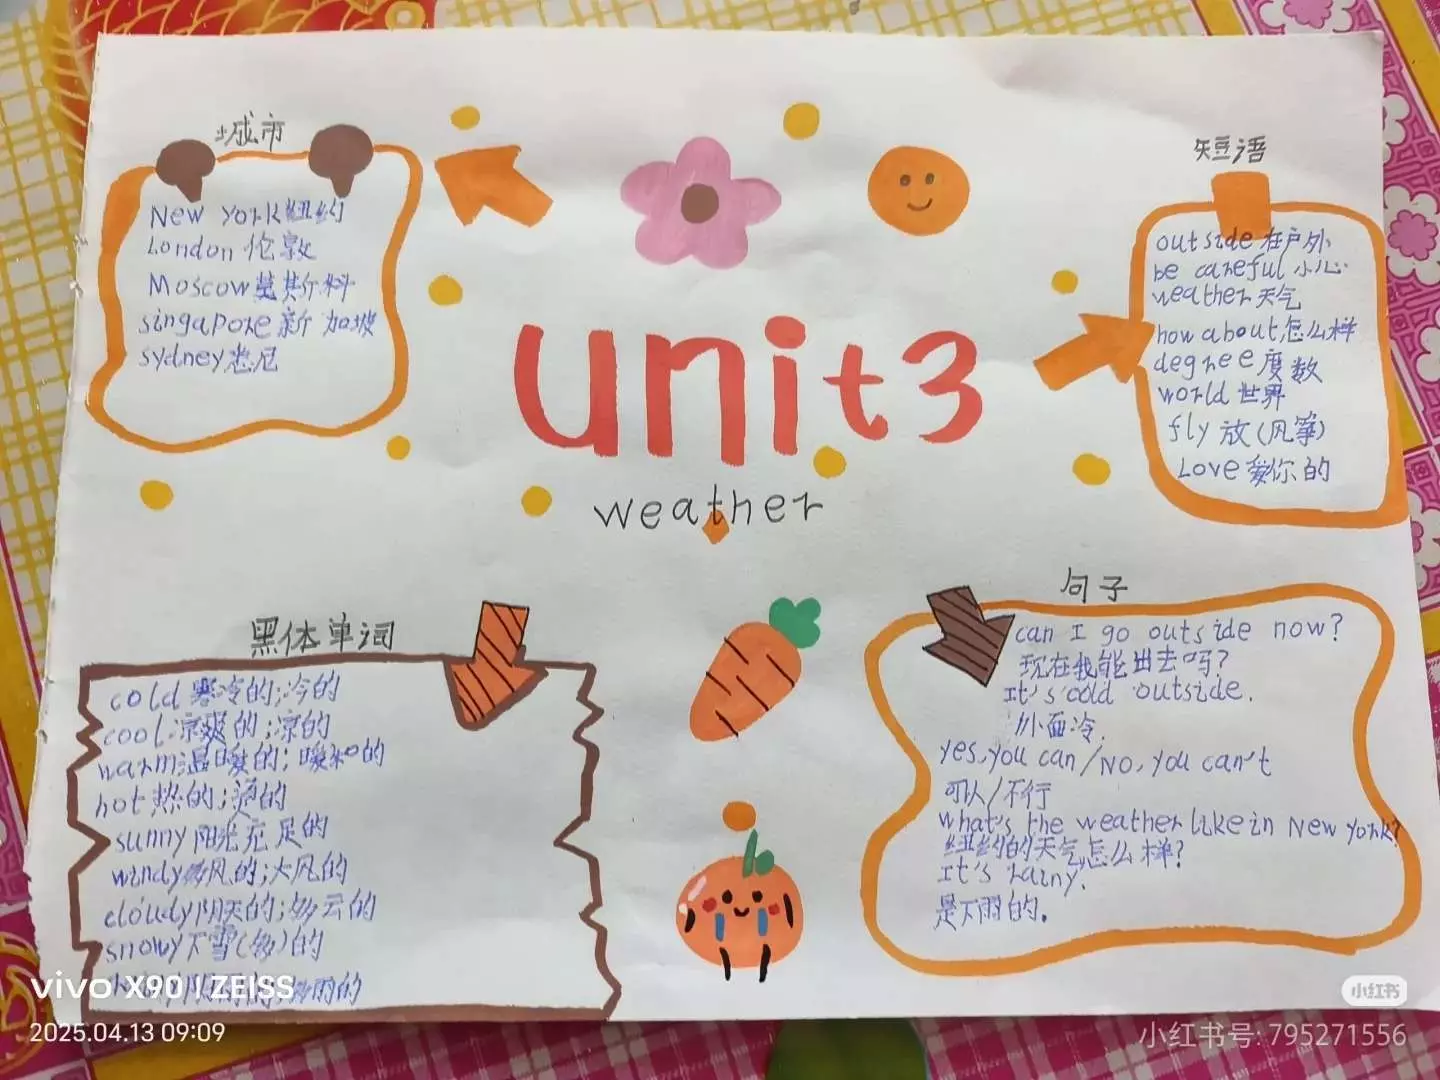 城市
New York纽约
London 伦敦
Moscow莫斯科
singapore 新加坡
sydney悉尼
unit3
weather
短语
outside 在户外
be careful 小心
weather天气
how about怎么样
degree度数
world 世界
fly 放(风筝)
Love 爱你的
黑体单词
cold 寒冷的;冷的
cool凉爽的;凉的
warm温暖的;暖和的
hot 热的;烫的
sunny阳光充足的
windy多风的;大风的
cloudy阴天的;多云的
snowy下雪(多)的
多雨的
句子
can I go outside now?
现在我能出去吗?
It's cold outside.
外面冷.
yes,you can/No,you can't
可以/不行
what's the weather like in New York?
纽约的天气怎么样?
It's rainy.
是下雨的.
vivo X90 | ZEISS
2025.04.13 09:09
小红书
小红书号: 795271556